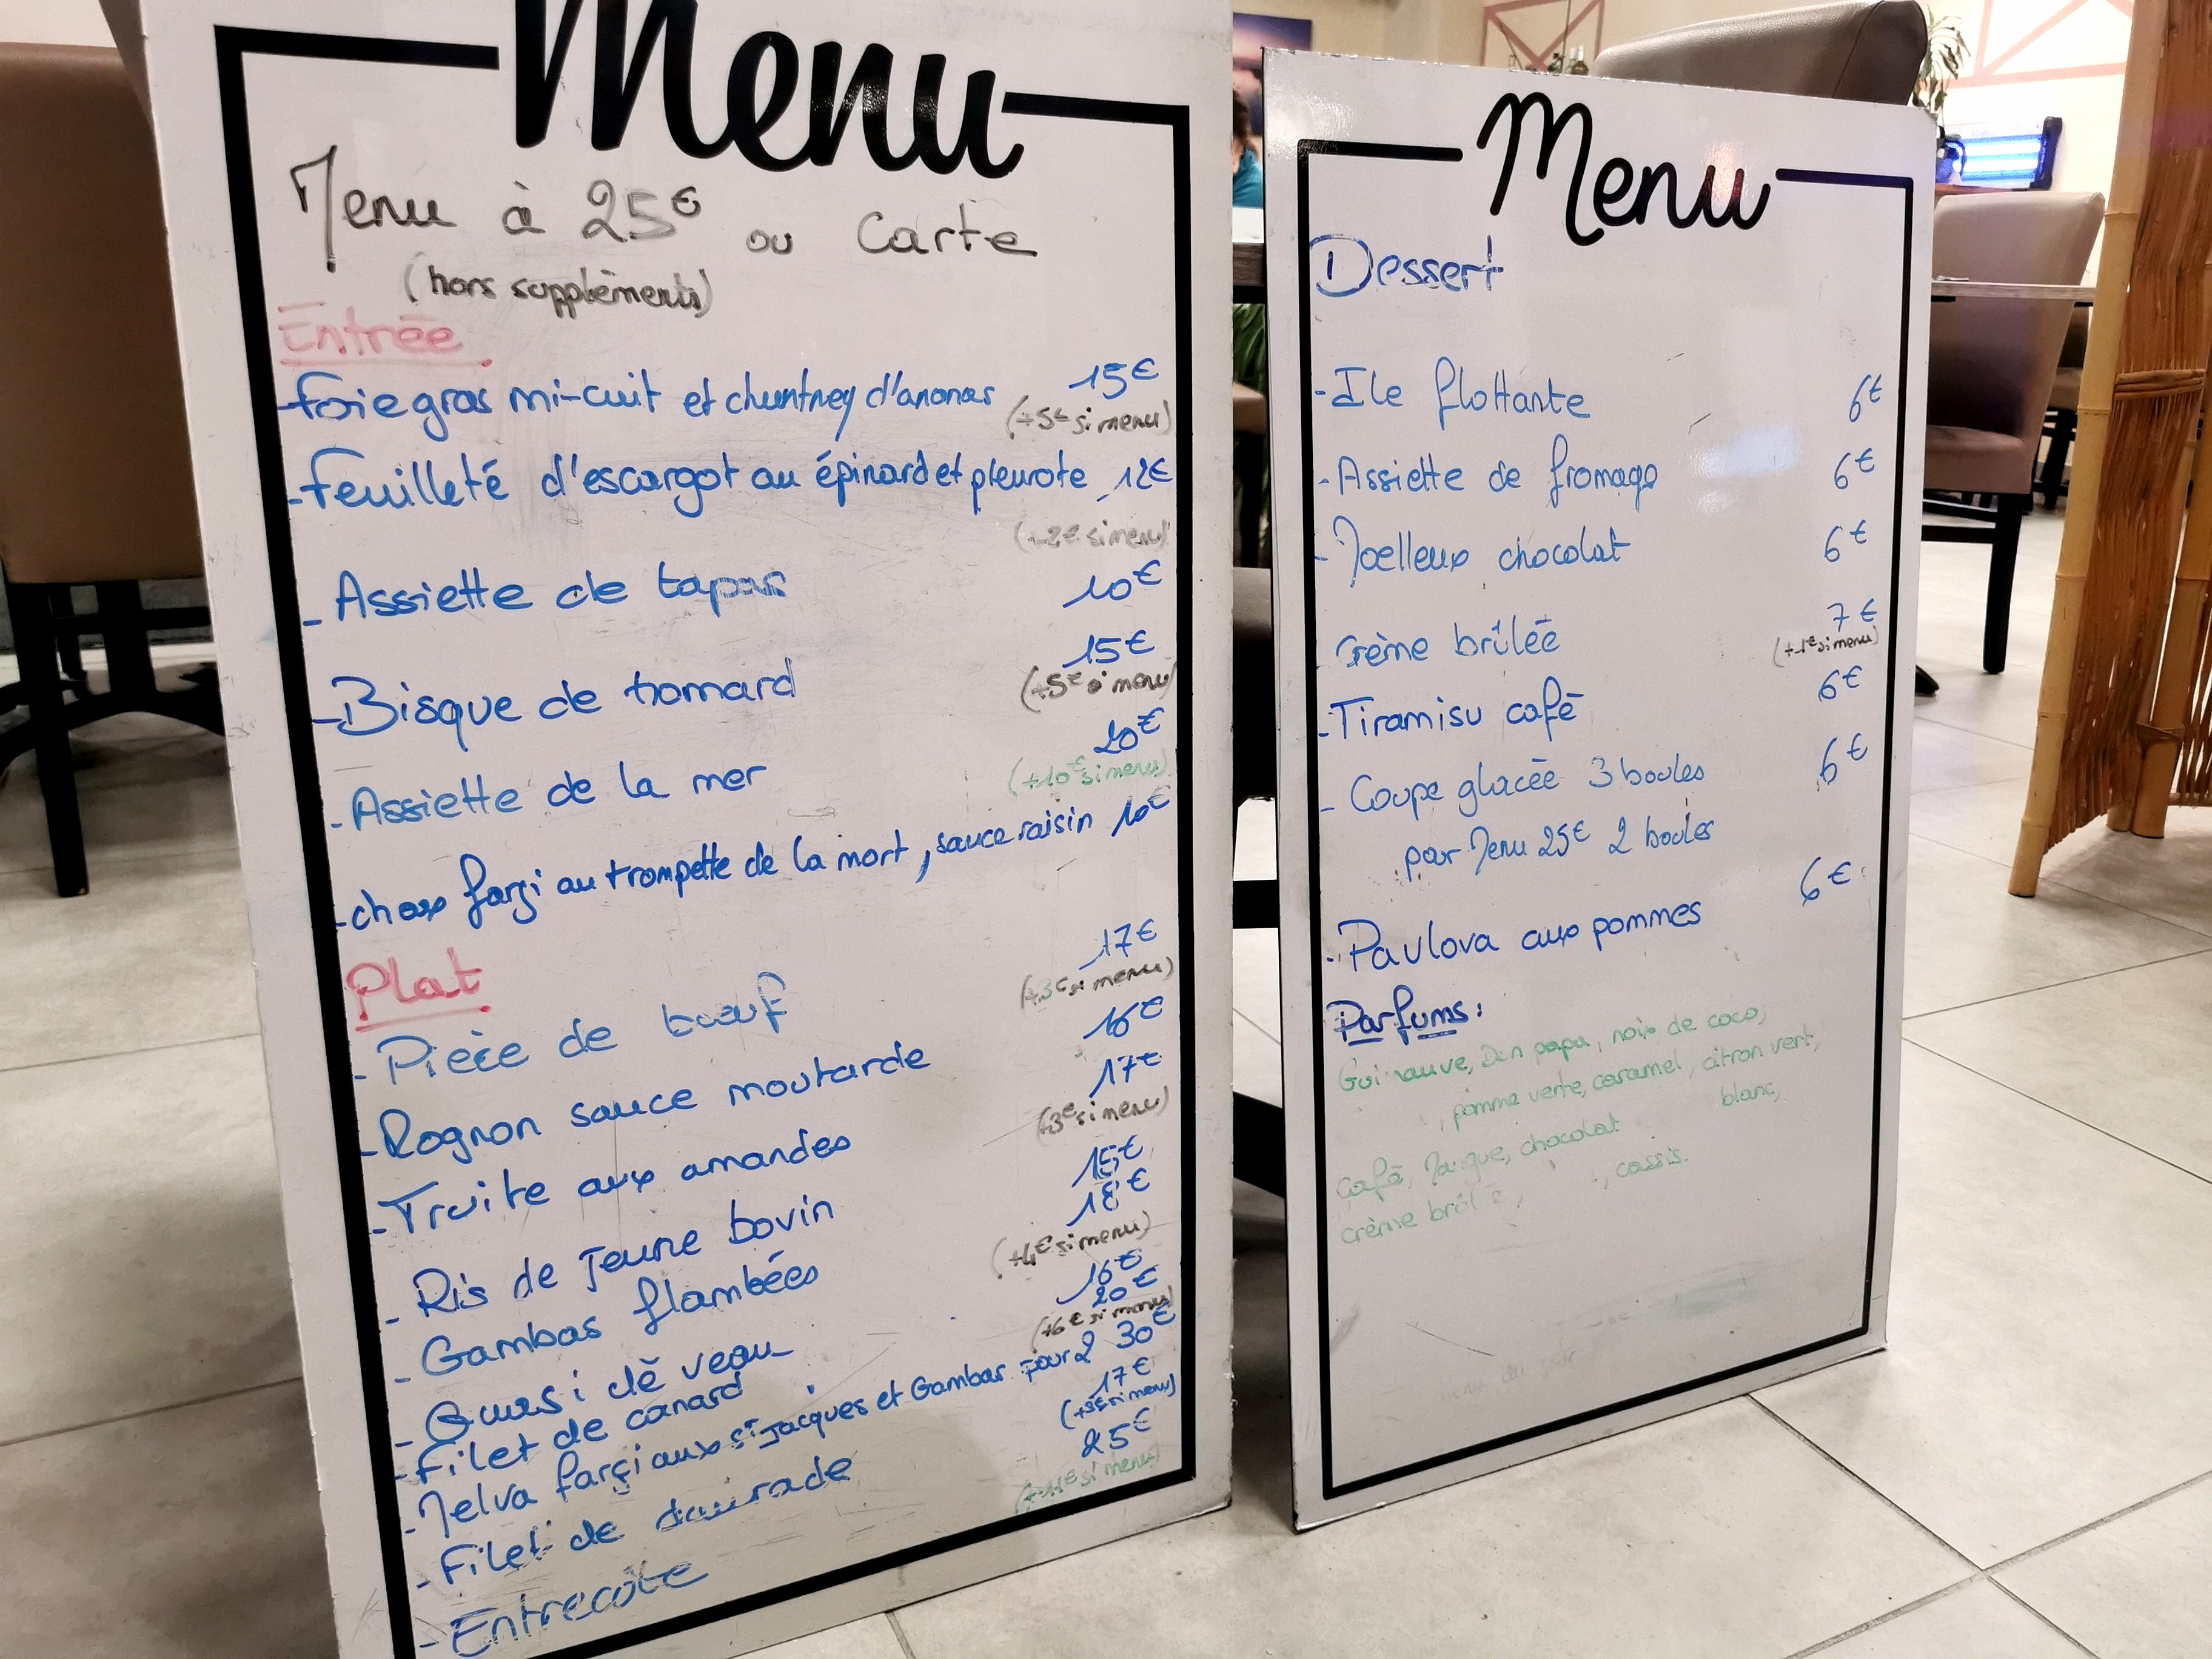 Menu
Menu à 25€ ou Carte
(hors suppléments)
Entrée
- Foie gras mi-cuit et chuntney d'ananas 15€
(+5€ si menu)
- Feuilleté d'escargot au épinard et pleurote 12€
(+2€ si menu)
- Assiette de tapas 10€
- Bisque de homard 15€
(+5€ si menu)
- Assiette de la mer 20€
(+10€ si menu)
- choux farçi au trompette de la mort, sauce raisin 10€
Plat
- Pièce de bœuf 17€
(+3€ si menu)
- Rognon sauce moutarde 16€
- Truite aux amandes 17€
(3€ si menu)
- Ris de jeune bovin 15€
- Gambas flambées 18€
(+4€ si menu)
- Quasi de veau 16€
- Filet de canard 20€
(+6€ si menu)
- Melva farçi aux St Jacques et Gambas pour 2 30€
- Filet de daurade 17€
(+3€ si menu)
- Entrecôte 25€
(+11€ si menu)
Menu
Dessert
- Ile flottante 6€
- Assiette de fromage 6€
- Moelleux chocolat 6€
Crème brûlée 7€
(+1€ si menu)
- Tiramisu café 6€
- Coupe glacée 3 boules 6€
pour Menu 25€ 2 boules
- Pavlova aux pommes 6€
Parfums:
Guimauve, Don papa, noix de coco,
, pomme verte, caramel, citron vert,
café, Mangue, chocolat blanc,
crème brûl , , cassis.